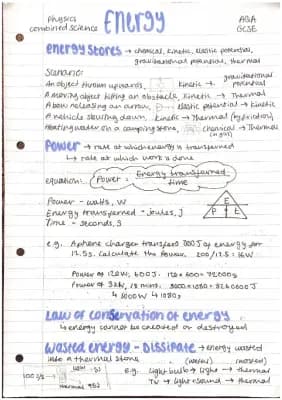 Physics
combined science
Energy
AQA
GCSE
energy stores → chemical, kinetic, elastic potential,
gravitational potential, thermal
Scenario:
An object thrown upwards, kinetic → gravitational potential
A moving object hitting an obstacle, kinetic → Thermal
A bow releasing an arrow, elastic potential → kinetic
A vehicle slowing down, kinetic → Thermal (by friction)
Heating water on a camping stove, chemical → Thermal
(in gas)
Power → rate at which energy is transferred
↳ rate at which work is done
equation: Power = Energy transferred
time
Power - watts, W
Energy transferred - joules, J
Time - seconds, S
E
P t
e.g. A phone charger transfers 200J of energy for
12.5s. Calculate the power. 200/12.5 = 16W
Law of conservation of energy
↳ energy cannot be created or destroyed
wasted energy - Dissipate → energy wasted
like a thermal store
(useful) (wasted)
e.g. light bulb → light → thermal
TV → light + sound → thermal
100 J/s
light
thermal